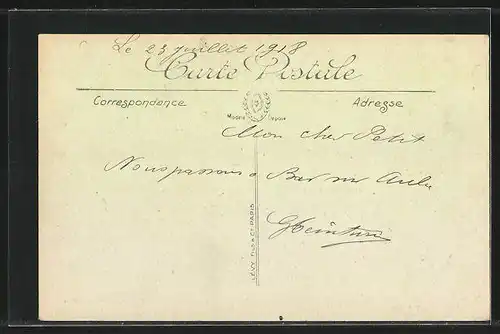 Le 23 juillet 1918
Carte Postale
Correspondance
Adresse
Mon cher Petit
Nous passons a Bar sur Aube
LÉVY FILS & Cie PARIS